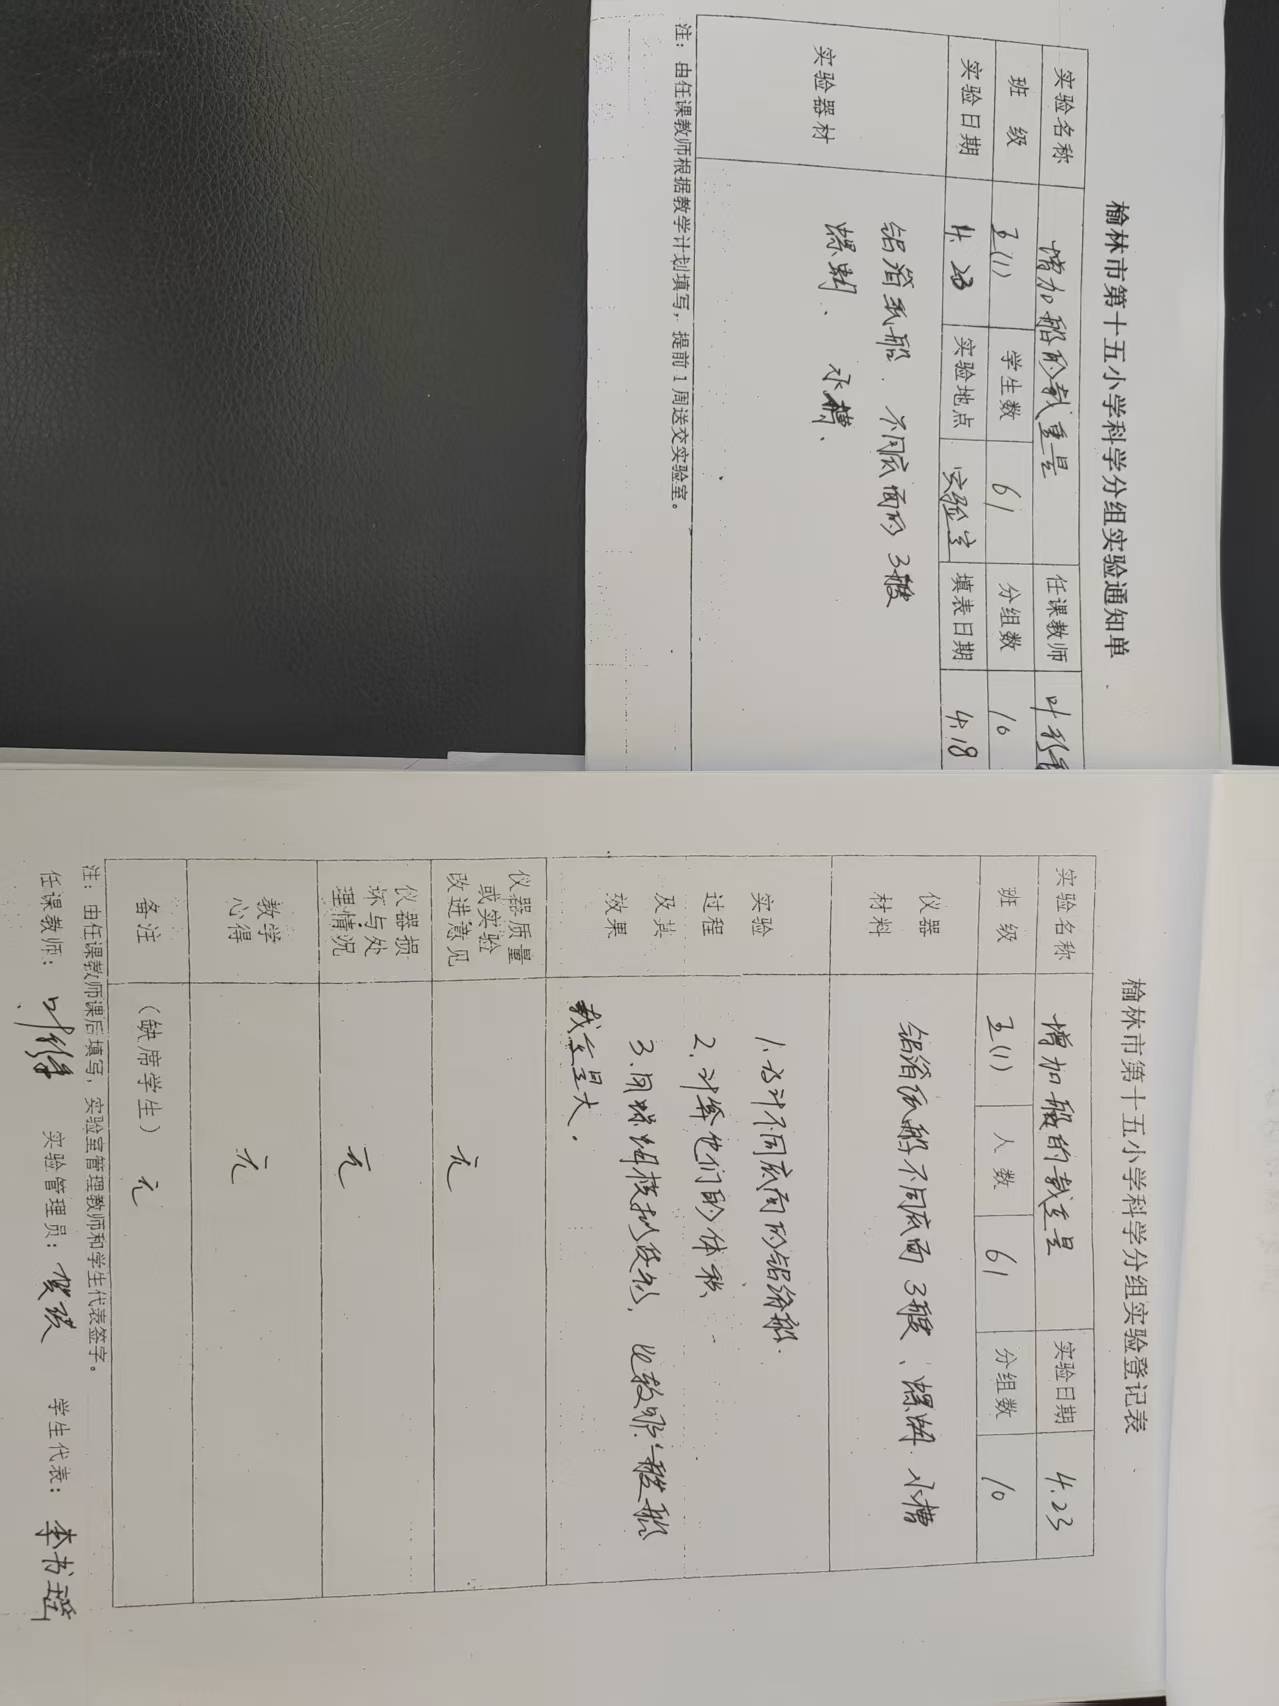 榆林市第十五小学科学分组实验通知单
实验名称 增加船的载重量 任课教师
班 级 五(1) 学生数 61 分组数 10
实验日期 4.23 实验地点 实验室 填表日期 4.18
实验器材 铝箔纸船、不同底面的3艘
螺蚂、水槽、
注：由任课教师根据教学计划填写，提前1周送交实验室。
榆林市第十五小学科学分组实验登记表
实验名称 增加船的载重量 实验日期 4.23
班 级 五(1) 人数 61 分组数 10
仪器材料 铝箔纸船不同底面3艘、螺蚂、水槽
实验过程及其效果 1.设计不同底面的铝箔船.
2.计算他们的体积
3.用螺蚂模拟货物，比较哪一艘船
载重量大.
仪器质量或实验改进意见 无
仪器损坏与处理情况 无
教学心得 无
备注 （缺席学生） 无
注：由任课教师课后填写，实验室管理教师和学生代表签字。
任课教师： 实验管理员： 学生代表：李书瑶